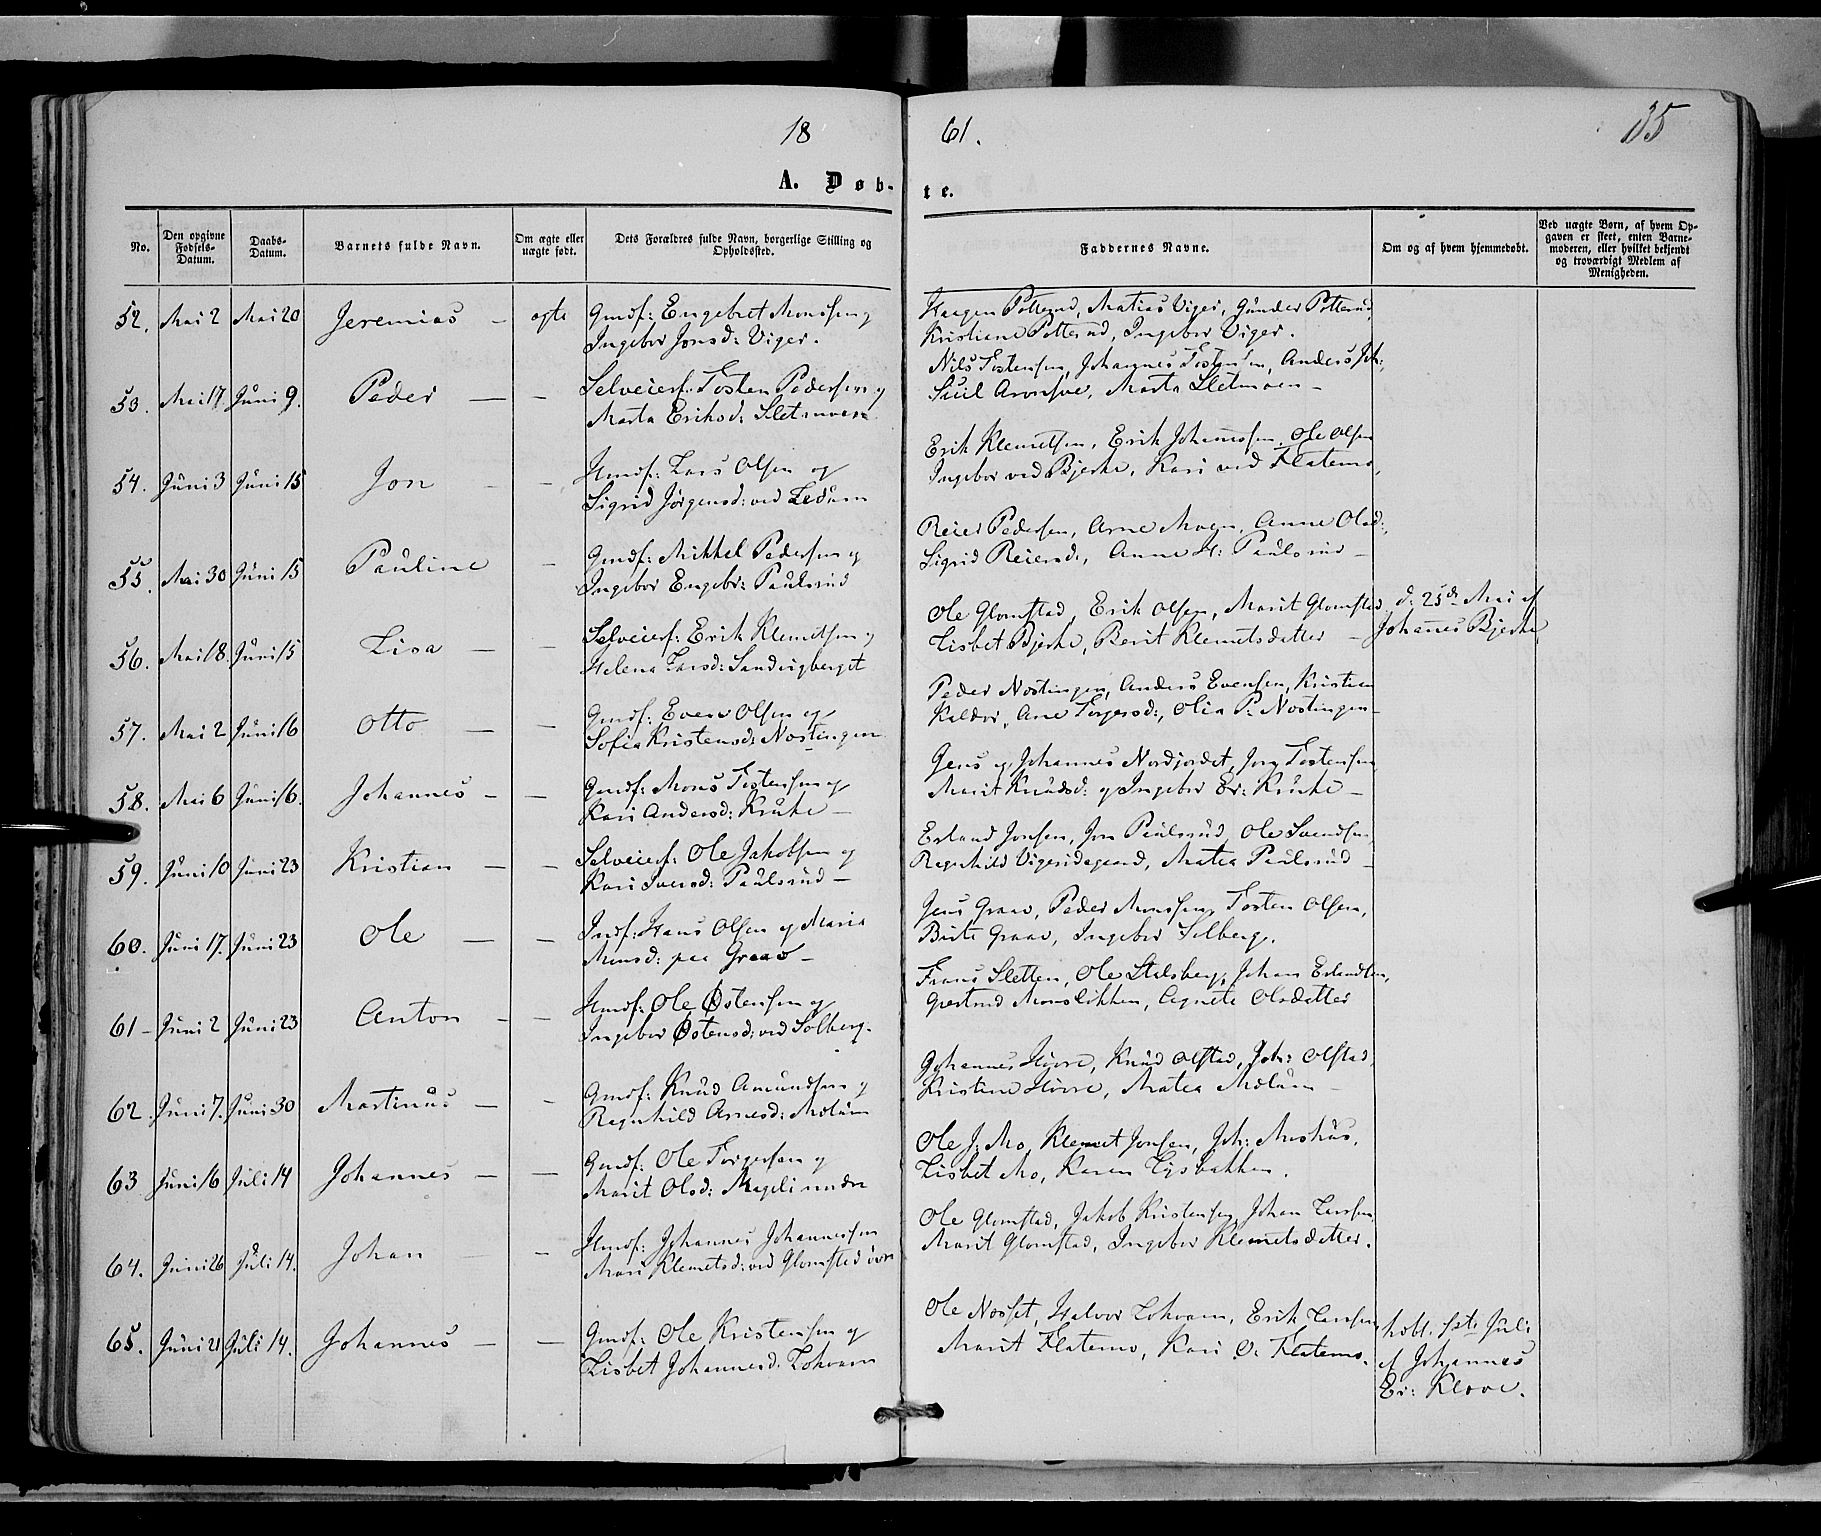 18 61. 35
A. Døb- te.
No. Den opgivne Fødsels-Datum. Daabs-Datum. Barnets fulde Navn. Om ægte eller uægte født. Dets Forældres fulde Navn, borgerlige Stilling og Opholdssted. Faddernes Navne. Om og af hvem hjemmedøbt. Ved uægte Børn, af hvem Opgaven er skeet, enten Barnemoderen, eller hvilket bekjendt og troværdigt Medlem af Menigheden.
52. Mai 2 Mai 20 Jeremias — ægte Gmdf: Engebret Monssen og
Ingebor Jonsd: Viger.
Haagen Potterud, Matias Viger, Gunder Potterud,
Kristiane Potterud, Ingebor Viger.
53. Mai 17 Juni 9. Peder — — Selveierf: Tosten Pedersen og
Marta Eriksd: Sletmoen
Nils Tostensen, Johannes Tostensen, Anders Joh:,
Siul Aronsve, Marta Sletmoen —
54. Juni 3 Juni 15 Jon — — Hmdf: Lars Olsen og
Sigrid Jørgensd: ved Ledum
Erik Klemetsen, Erik Johannssen, Ole Olsen
Ingebor ved Bjerke, Kari ved Flatemo,
55. Mai 30 Juni 15 Pauline — Gmdf: Mikkel Pedersen og
Ingebor Engebr: Paulsrud
Reier Pedersen, Arne Moen, Anne Olsd:,
Sigrid Reiersd:, Anne H: Paulsrud —
56. Mai 18. Juni 15 Lisa — — Selveierf: Erik Klemetsen og
Helena Larsd: Sandvigberget
Ole Glomstad, Erik Olsen, Marit Glomstad,
Lisbet Bjerke, Berit Klemetsdatter —
d: 25de Mai af
Johanes Bjerke
57. Mai 2 Juni 16 Otto — — Gmdf: Even Olsen og
Sofia Kristensd: Nøstingen
Peder Nøstingen, Anders Evensen, Kristian
Kaldor, Ane Torgersd:, Olia P: Nøstingen —
58. Mai 6 Juni 16. Johannes — — Gmdf: Mons Tostensen og
Kari Andersd: Kruke —
Jens og Johannes Nordjordet, Jon Tostensen,
Marit Knudsd: og Ingebor Er: Kruke —
59. Juni 10 Juni 23 Kristian — — Selveierf: Ole Jakobsen og
Kari Iversd: Paulsrud —
Erland Jonsen, Jon Paulsrud, Ole Svendsen,
Regnhild Vigersdagaard, Matea Paulsrud —
60. Juni 17. Juni 23 Ole — — Indf: Hans Olsen og Maria
Monsd: paa Graav —
Jens Graav, Peder Monssen, Tosten Olsen,
Birte Graav, Ingebor Solberg.
61 — Juni 2 Juni 23 Anton — — Hmdf: Ole Østensen og
Ingebor Østensd: ved Solberg.
Frans Sletten, Ole Stalsberg, Johan Erlandsen,
Gjertrud Monslikken, Agnete Olsdatter
62. Juni 7. Juni 30 Martinus — — Gmdf: Knud Amundsen og
Regnhild Arnesd: Mølum
Johannes Hovre, Knud Olstad, Joh: Olstad,
Kristine Hovre, Matea Mølum —
63 Juni 16 Juli 14 Johannes — — Gmdf: Ole Torgersen og
Marit Olsd: Mageli nedre
Ole J: Mo, Klemet Jonsen, Joh: Moshus,
Lisbet Mo, Karen Lysbakken.
64. Juni 26 Juli 14. Johan — — Hmdf: Johannes Johannessen
Mari Klemetsd: ved Glomstad øvre
Ole Glomstad, Jakob Kristensen, Johan Larssen,
Marit Glomstad, Ingebor Klemetsdatter.
65. Juni 21 Juli 14. Johannes — — Gmdf: Ole Kristensen og
Lisbet Johannesd: Lokvam
Ole Nosset, Halvor Lokvam, Erik Larssen,
Marit Flatemo, Kari O: Flatemo.
hdbt. 1ste Juli
af Johannes
Er: Klove.